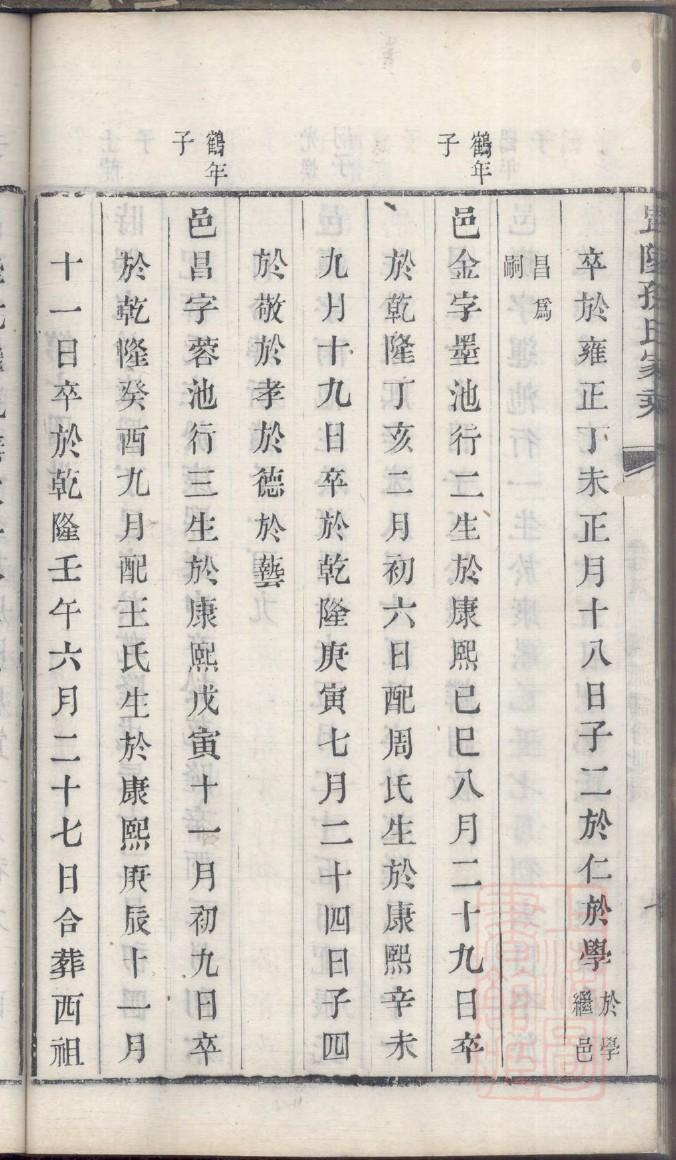 孫氏家乘
卒於雍正丁未正月十八日子二於仁於學於學繼邑
昌為嗣
鶴年子
邑金字墨池行二生於康熙己巳八月二十九日卒
於乾隆丁亥二月初六日配周氏生於康熙辛未
九月十九日卒於乾隆庚寅七月二十四日子四
於敬於孝於德於藝
鶴年子
邑昌字蓉池行三生於康熙戊寅十一月初九日卒
於乾隆癸酉九月配王氏生於康熙庚辰十一月
十一日卒於乾隆壬午六月二十七日合葬西祖